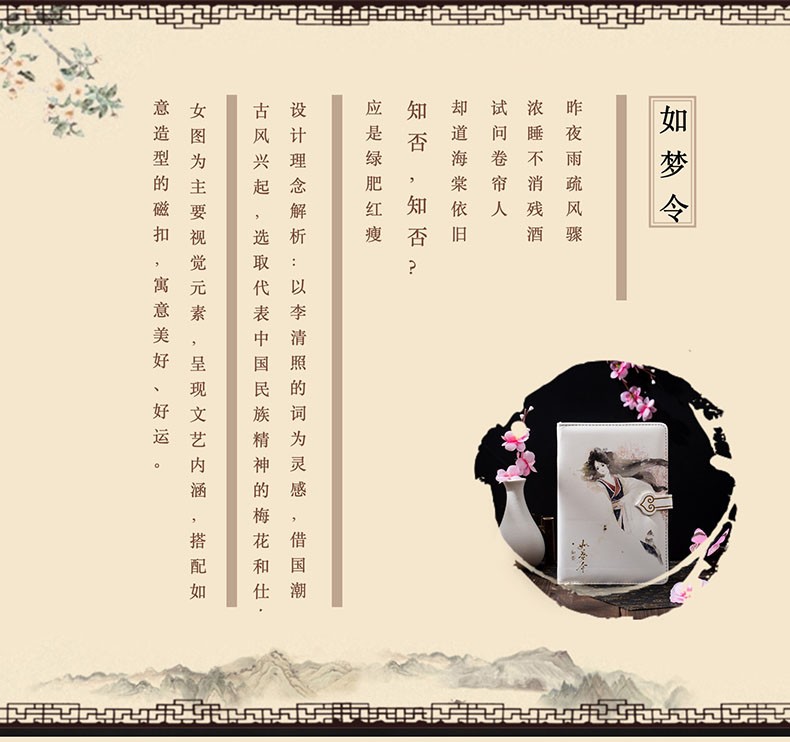 如梦令
昨夜雨疏风骤
浓睡不消残酒
试问卷帘人
却道海棠依旧
知否，知否?
应是绿肥红瘦
设计理念解析：以李清照的词为灵感，借国潮
古风兴起，选取代表中国民族精神的梅花和仕.
女图为主要视觉元素，呈现文艺内涵，搭配如
意造型的磁扣，寓意美好、好运。
如梦令